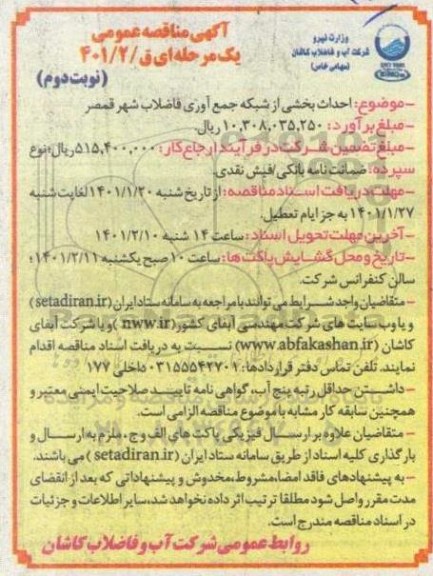 آگهی مناقصه عمومی
یک مرحله‌ای ق/۴۰۱/۲
(نوبت دوم)
وزارت نیرو
شرکت آب و فاضلاب کاشان
(سهامی خاص)
-موضوع: احداث بخشی از شبکه جمع آوری فاضلاب شهر قمصر
-مبلغ برآورد: ۱۰,۳۰۸,۰۳۵,۲۵۰ ریال.
-مبلغ تضمین شرکت در فرآیند ارجاع کار: ۵۱۵,۴۰۰,۰۰۰ ریال؛ نوع
سپرده: ضمانت نامه بانکی/فیش نقدی.
-مهلت دریافت اسناد مناقصه: از تاریخ شنبه ۱۴۰۱/۱/۲۰ لغایت شنبه
۱۴۰۱/۱/۲۷ به جز ایام تعطیل.
-آخرین مهلت تحویل اسناد: ساعت ۱۴ شنبه ۱۴۰۱/۲/۱۰
-تاریخ و محل گشایش پاکت ها: ساعت ۱۰ صبح یکشنبه ۱۴۰۱/۲/۱۱؛
سالن کنفرانس شرکت.
- متقاضیان واجد شرایط می توانند با مراجعه به سامانه ستاد ایران (setadiran.ir)
و یا وب سایت های شرکت مهندسی آبفای کشور (nww.ir) و یا شرکت آبفای
کاشان (www.abfakashan.ir) نسبت به دریافت اسناد مناقصه اقدام
نمایند. تلفن تماس دفتر قراردادها: ۰۳۱۵۵۵۴۲۷۰۱ داخلی ۱۷۷
- داشتن حداقل رتبه پنج آب، گواهی نامه تایید صلاحیت ایمنی معتبر و
همچنین سابقه کار مشابه با موضوع مناقصه الزامی است.
- متقاضیان علاوه بر ارسال فیزیکی پاکت های الف و ج، ملزم به ارسال و
بارگذاری کلیه اسناد از طریق سامانه ستاد ایران (setadiran.ir) می باشند.
-به پیشنهادهای فاقد امضا، مشروط، مخدوش و پیشنهاداتی که بعد از انقضای
مدت مقرر واصل شود مطلقا ترتیب اثر داده نخواهد شد، سایر اطلاعات و جزئیات
در اسناد مناقصه مندرج است.
روابط عمومی شرکت آب و فاضلاب کاشان